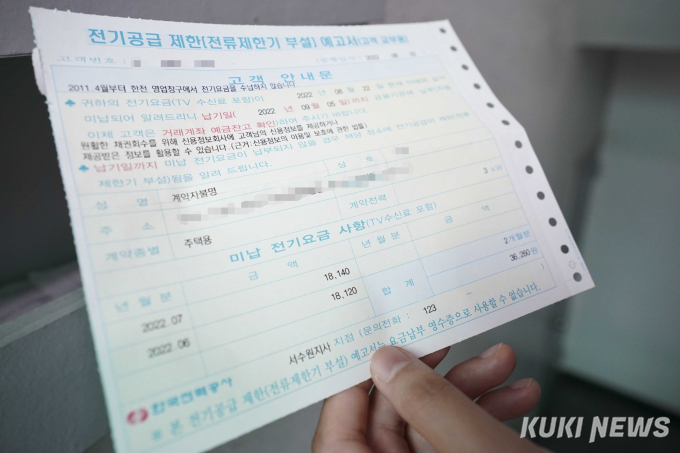 전기공급 제한(전류제한기 부설) 예고서(고객 교부용)
고객번호 :
고객 안내문
2011 4월부터 한전 영업창구에서 전기요금을 수납하지 않습니다.
귀하의 전기요금(TV 수신료 포함)이 2022 년 08 월 22 일
미납되어 알려드리니 납기일( 2022 년 09월 05일)까지
이체 고객은 거래계좌 예금잔고 확인)하여 주시기 바랍니다.
원활한 채권회수를 위해 신용정보회사에 고객님의 신용정보를 제공하거나
제공받은 정보를 활용할 수 있습니다. (근거:신용정보의 이용및 보호에 관한 법)
납기일까지 미납 전기요금이 납부되지 않을 경우 해당 장소에
제한기 부설)됨을 알려 드립니다.
성 명 계약자불명 상 호
주 소
계약종별 주택용 계약전력 3 kW
미납 전기요금 사항(TV수신료 포함)
년 월 분 금 액 년 월 분 금 액
2022.07 18,140 합 계 2 개월분
2022.06 18,120 36,260 원
서수원지사 지점 (문의전화 : 123
한국전력공사
※ 본 전기공급 제한(전류제한기 부설) 예고서는 요금납부 영수증으로 사용할 수 없습니다.
KUKI NEWS